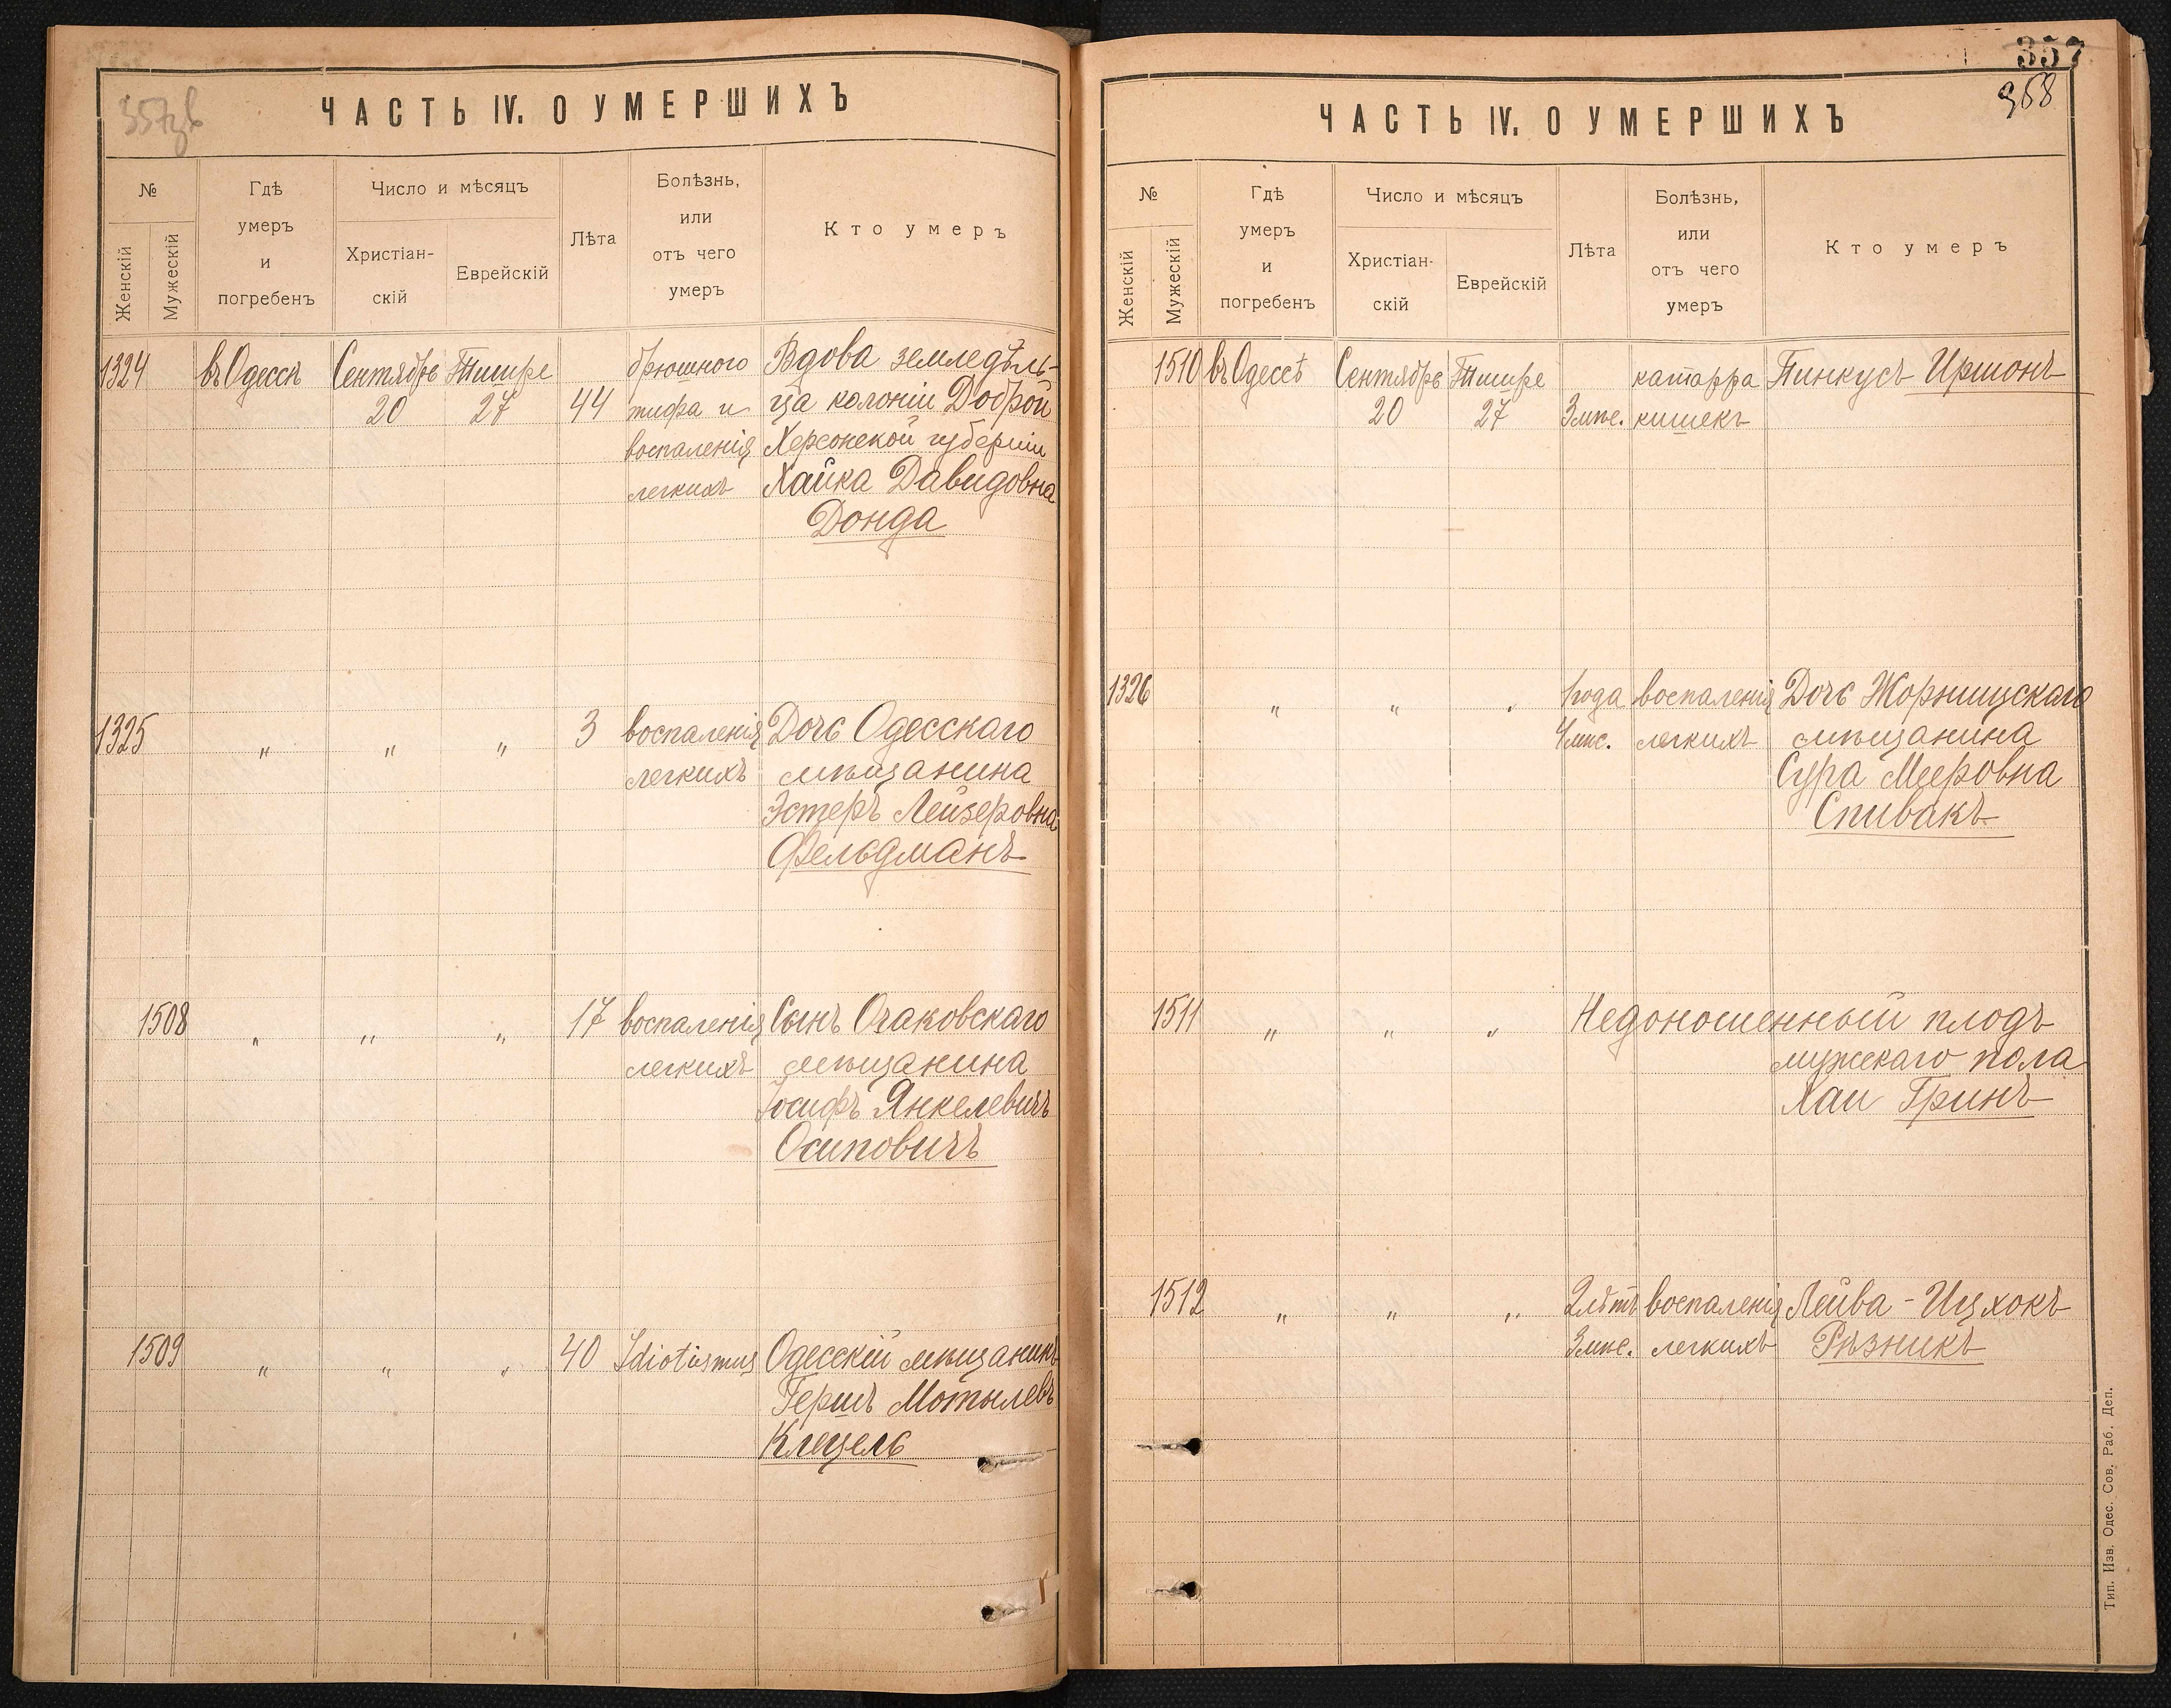 357зв
ЧАСТЬ IV. О УМЕРШИХЪ
№
Женскій
Мужескій
Гдѣ
умеръ
и
погребенъ
Число и мѣсяцъ
Христіан-
скій
Еврейскій
Лѣта
Болѣзнь,
или
отъ чего
умеръ
Кто умеръ
1324 въ Одессѣ Сентябрь Тишре брюшного Вдова земледѣль-
20 27 44 тифа и ца колоніи Доброй
воспаленія Херсонской губерніи
легкихъ Хайка Давидовна
Донда
1325 " " " 3 воспаленія Дочь Одесскаго
легкихъ мѣщанина
Эстеръ Лейзеровна
Фельдманъ
1508 " " " 17 воспаленія Сынъ Очаковскаго
легкихъ мѣщанина
Іосифъ Янкелевичъ
Осиповичъ
1509 " " " 40 Idiotismus Одесскій мѣщанинъ
Гершъ Мотылевъ
Клецель
357
358
ЧАСТЬ IV. О УМЕРШИХЪ
№
Женскій
Мужескій
Гдѣ
умеръ
и
погребенъ
Число и мѣсяцъ
Христіан-
скій
Еврейскій
Лѣта
Болѣзнь,
или
отъ чего
умеръ
Кто умеръ
1510 въ Одессѣ Сентябрь Тишре катарра Пинкусъ Иршонъ
20 27 3 мѣс. кишекъ
1326 " " " 1 года воспаленія Дочь Жорнищскаго
4 мѣс. легкихъ мѣщанина
Сура Мееровна
Спивакъ
1511 " " " Недоношенный плодъ
мужскаго пола
Хаи Гринъ
1512 " " " 2 лѣтъ воспаленія Лейва-Ицхокъ
3 мѣс. легкихъ Рѣзникъ
Тип. Изв. Одес. Сов. Раб. Деп.